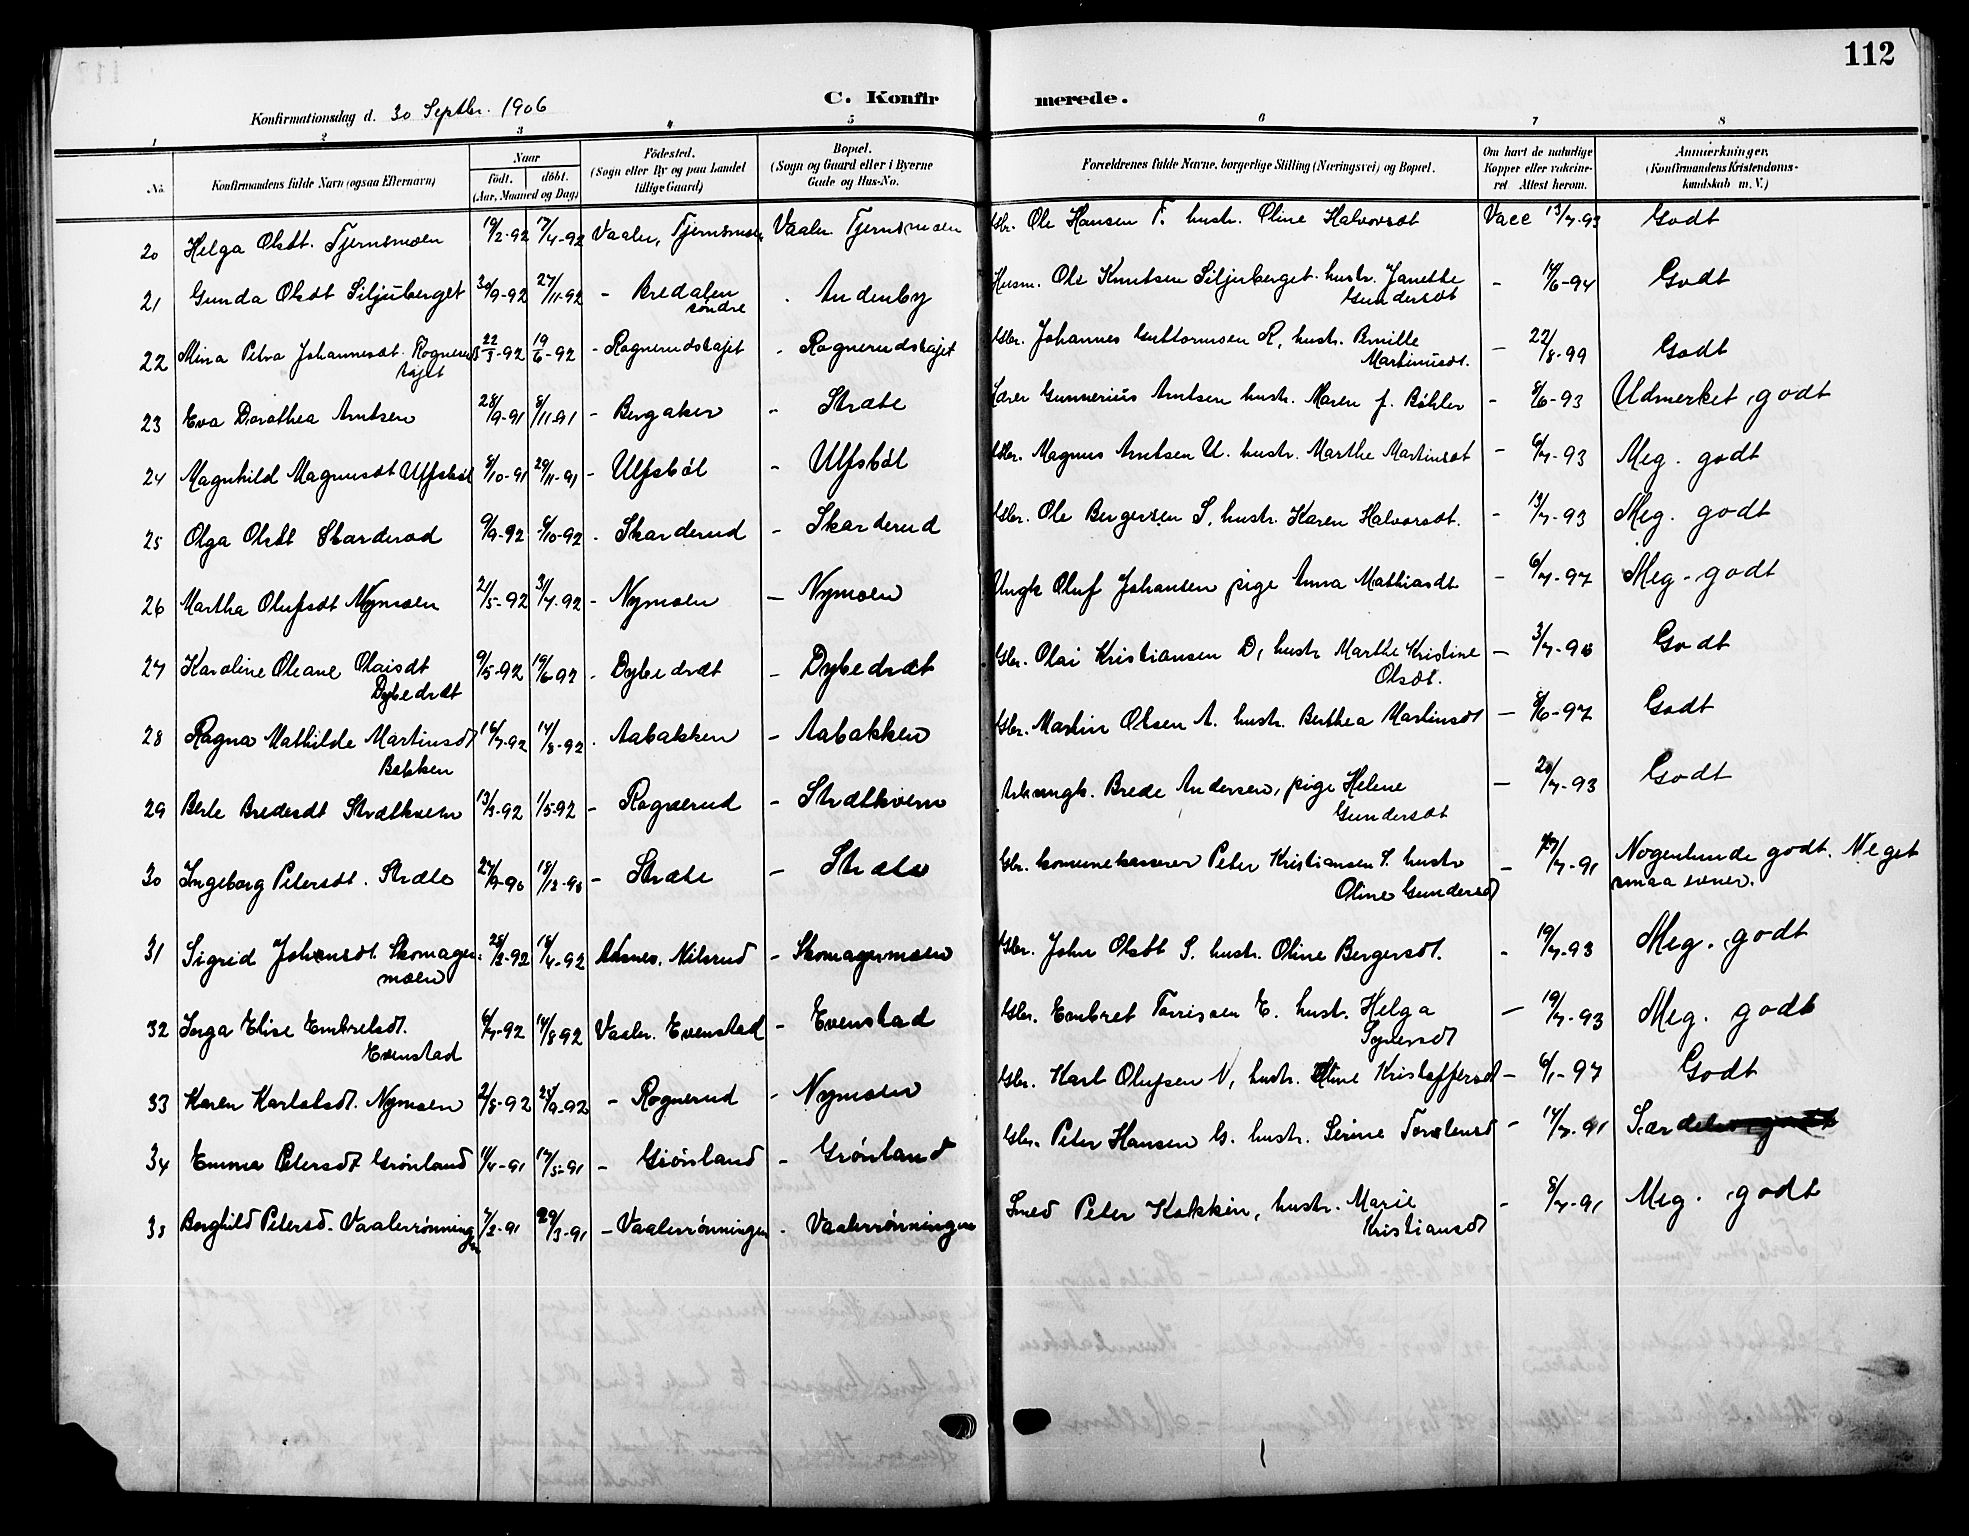 112
Konfirmationsdag d. 30 Septbr. 1906
C. Konfirmerede.
1 2 3 4 5 6 7 8
No. Konfirmandens fulde Navn (ogsaa Efternavn) Naar født. døbt. (Aar, Maaned og Dag) Fødested. (Sogn eller By og paa Landet tillige Gaard) Bopæl. (Sogn og Gaard eller i Byerne Gade og Hus-No. Forældrenes fulde Navne, borgerlige Stilling (Næringsvei) og Bopæl. Om havt de naturlige Kopper eller vakcineret. Attest herom. Anmærkninger. (Konfirmandens Kristendomskundskab m. V.)
20 Helga Olsdt. Tjernsmoen 19/2-92 17/4-92 Vaaler, Tjernsmoen Vaaler Tjernsmoen Gbr. Ole Hansen T. hustr. Oline Halvorsdt Vacc 13/7-93 Godt
21 Gunda Olsdt Siljuberget 30/9-92 27/11-92 - Bredalen søndre - Andenby Husm. Ole Knutsen Siljuberget hustr. Janette Gundersdt - 14/6-94 Godt
22 Mina Petra Johannesdt. Rognerudstajet 22/3-92 19/6-92 - Rognerudstajet - Rognerudstajet Gbr. Johannes Guttormsen R, hustr. Martinusdt. - 22/8-99 Godt
23 Eva Dorothea Arntsen 28/9-91 8/11-91 - Bergaker - Stræte Lærer Gunnerius Arntsen hustr. Maren f. Bøhler - 8/6-93 Udmerket godt
24 Magnhild Magnusdt Ulfsbøl 8/10-91 29/11-91 - Ulfsbøl - Ulfsbøl Gbr. Magnus Arntsen U. hustr. Marthe Martinsdt - 6/7-93 Meg. godt
25 Olga Olsdt Skarderud 9/9-92 6/10-92 - Skarderud - Skarderud Gbr. Ole Bergersen S, hustr. Karen Halvorsdt. - 13/7-93 Meg. godt
26 Martha Olufsdt Nymoen 21/5-92 31/7-92 - Nymoen - Nymoen Ungk Oluf Johansen pige Anna Mathiasdt - 6/7-97 Meg. godt
27 Karoline Oleane Olaisdt Dybedræt 9/5-92 19/6-92 - Dybedræt - Dybedræt Gbr. Olai Kristiansen D, hustr Marthe Kristine Olsdt. - 3/7-98 Godt
28 Ragna Mathilde Martinsdt Bakken 16/7-92 14/8-92 - Aabakken - Aabakken Gbr. Martin Olsen A. hustr. Berthea Martinsdt - 8/6-97 Godt
29 Berte Bredesdt Strætkvern 13/3-92 1/5-92 - Rognerud - Strætkvern Arb. ungk. Brede Andersen, pige Helene Gundersdt - 20/7-93 Godt
30 Ingeborg Petersdt. Stræte 27/9-90 18/12-90 - Stræte - Stræte Gbr. komunekasserer Peter Kristiansen S. hustr Oline Gundersdt - 17/7-91 Nogenlunde godt. Meget smaa evner.
31 Sigrid Johansdt. Skomagermoen 28/2-92 18/4-92 Aasnes, Nilsrud - Skomagermoen Gbr. John Olsdt S. hustr. Oline Bergersdt. - 19/7-93 Meg. godt
32 Inga Elise Embretsdt. Evenstad 6/7-92 14/8-92 Vaaler. Evenstad - Evenstad Gbr. Embret Torrissen E. hustr. Helga Syversdt - 19/7-93 Meg. godt
33 Karen Karlsdt. Nymoen 2/8-92 25/9-92 - Rognerud - Nymoen Gbr. Karl Olufsen N, hustr. Oline Kristoffersdt - 6/1-97 Godt
34 Emma Petersdt Grønland 11/4-91 17/5-91 - Grønland - Grønland Gbr. Peter Hansen G. hustr. Serine Torstensd - 14/7-91 Særdeles godt
35 Borghild Petersd. Vaalerrønningen 7/2-91 29/3-91 - Vaalerrønningen - Vaalerrønningen Smed Peter Kokkin, hustr. Marie Kristiansdt - 8/7-91 Meg. godt